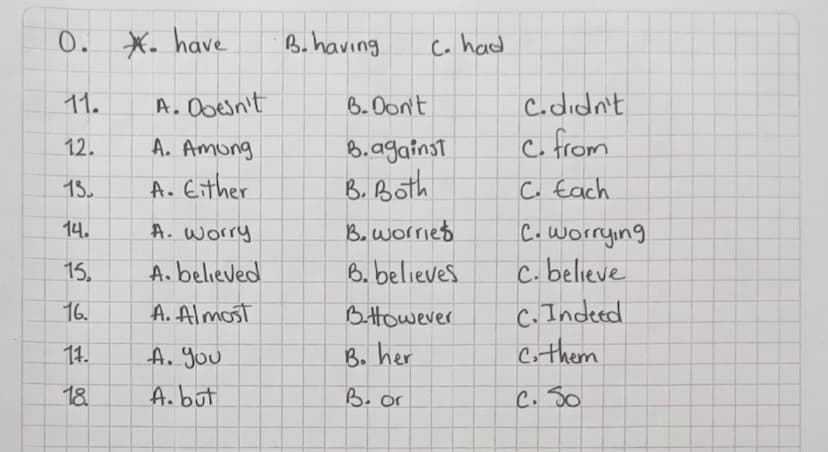 0. A. have B. having C. had
11. A. Doesn't B. Don't C. didn't
12. A. Among B. against C. from
13. A. Either B. Both C. Each
14. A. worry B. worries C. worrying
15. A. believed B. believes C. believe
16. A. Almost B. However C. Indeed
17. A. you B. her C. them
18 A. but B. or C. So